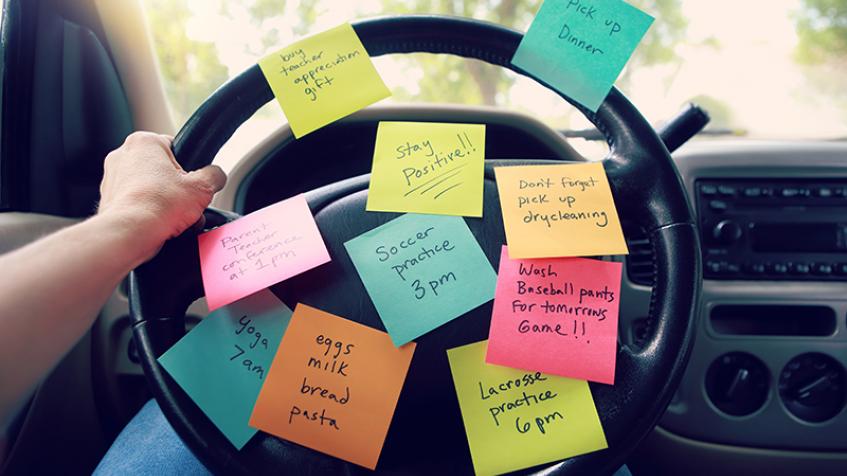 buy
teacher
appreciation
gift
Pick up
Dinner
Stay
Positive!!
Don't forget
pick up
drycleaning
Parent
Teacher
conference
at 1pm
Soccer
practice
3pm
Wash
Baseball pants
For tomorrows
Game!!
Yoga
7am
eggs
milk
bread
pasta
Lacrosse
practice
6pm